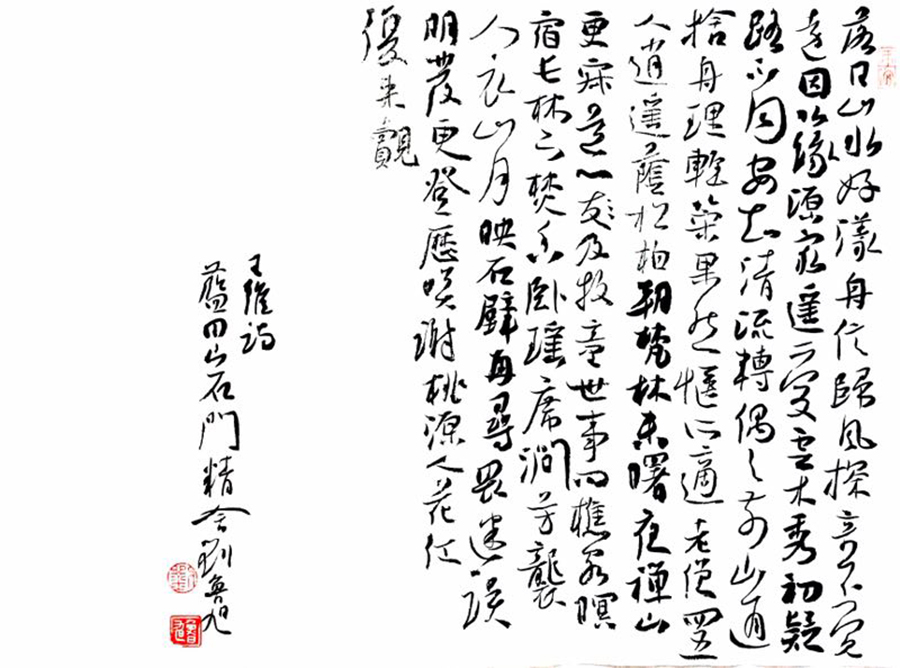 落日山水好漾舟信歸風探奇不覺
遠因以緣源窮遙愛雲木秀初疑
路不同安知清流轉偶與前山通
捨舟理輕策果然愜所適老僧四五
人逍遙蔭松柏朝梵林未曙夜禪山
更寂道心及牧童世事問樵客暝
宿長林下焚香臥瑤席澗芳襲
人衣山月映石壁再尋畏迷誤
明發更登歷笑謝桃源人花紅
復來覿
王維詩
藍田山石門精舍劉魯旭